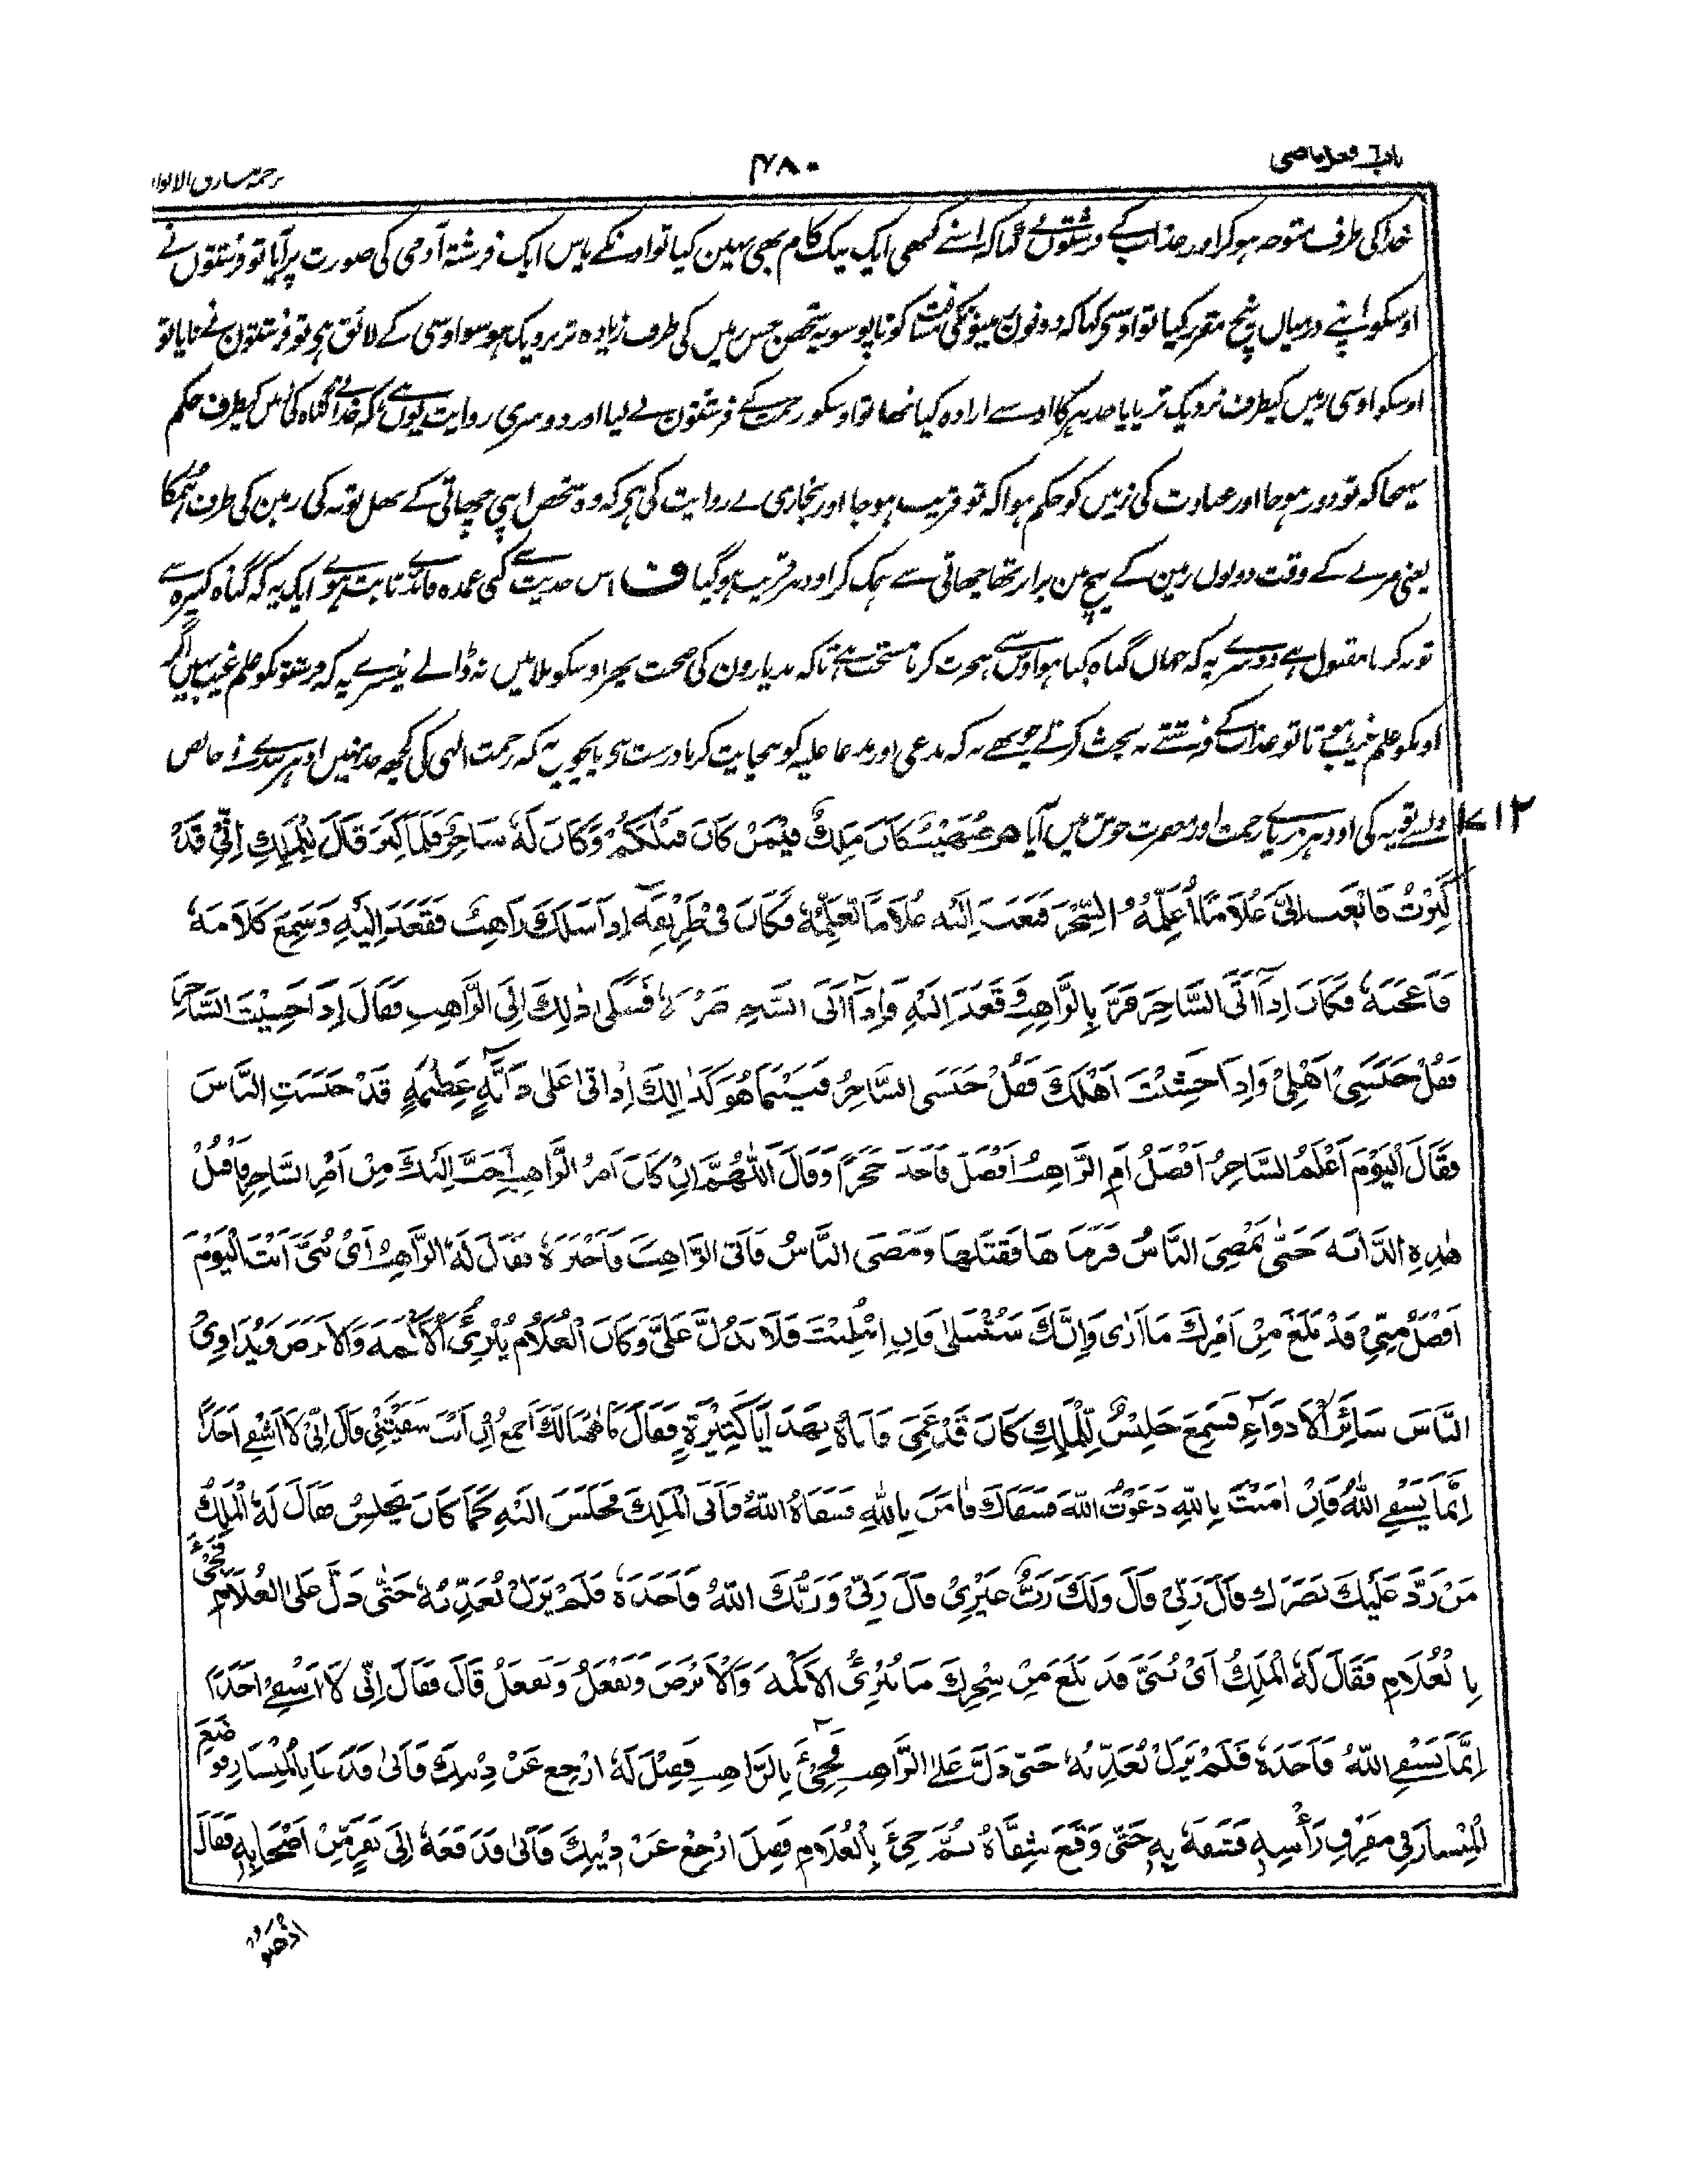 باب ٦ فعل ماضی
۴۸۰
ترجمہ مشارق الانوار
خدا کی طرف متوجہ ہو کر اور عذاب کے فرشتوں نے کہا کہ اسنے کبھی ایک نیک کام بھی نہین کیا تو اونکے پاس ایک فرشتہ آدمی کی صورت پر آیا تو فرشتوں نے
اوسکو اپنے درمیاں پنچ مقرر کیا تو اوسنی کہا کہ دونون زمینونکی مسافت کو ناپو سو یہ شخص جس زمیں کی طرف زیادہ تر نزدیک ہو سو اوسی کے لائق ہی تو فرشتون نے ناپا تو
اوسکو اوسی زمیں کیطرف نزدیک تر پایا جدہر کا اوسے ارادہ کیا تھا تو اوسکو رحمت کے فرشتون نے لیا اور دوسری روایت یوں ہے کہ خدا نے گناہ کی زمیں کیطرف حکم
بھیجا کہ تو دور ہو جا اور عبادت کی زمیں کو حکم ہوا کہ تو قریب ہو جا اور بخاری نے روایت کی ہی کہ وہ شخص اپنی چھاتی کے بھل توبہ کی زمین کی طرف ہمکا
یعنی مرنے کے وقت دونوں زمین کے بیچ من برابر تھا چھاتی سے ہمک کر اودہر قریب ہو گیا ف اس حدیث سے کئی عمدہ فائدے ثابت ہوے ایک یہ کہ گناہ کبیرہ سے
توبہ کرنا مقبول ہے دوسرے یہ کہ جہاں گناہ کیا ہو اوس سے ہجرت کرنا مستحب ہے تاکہ بد یارون کی صحبت پھر اوسکو بلا میں نہ ڈالے تیسرے یہ کہ فرشتونکو علم غیب نہیں اگر
اونکو علم غیب ہوتا تو عذاب کے فرشتے نہ بحث کرتے چوتھے یہ کہ مدعی اور مدعا علیہ کو پنچایت کرنا درست ہی پانچویں یہ کہ رحمت الہی کی کچھ حد نہیں اودہر بندے نے خالص
۱۷۱۲
دلسے توبہ کی اودہر دریاے رحمت اور مغفرت جوش میں آیا هر صُهَيْبٌ كَانَ مَلِكٌ فِيمَنْ كَانَ قَبْلَكُمْ وَكَانَ لَهٗ سَاحِرٌ فَلَمَّا كَبِرَ قَالَ لِلْمَلِكِ اِنِّيْ قَدْ
كَبِرْتُ فَابْعَثْ اِلَيَّ غُلَامًا اُعَلِّمُهُ السِّحْرَ فَبَعَثَ اِلَيْهِ غُلَامًا يُعَلِّمُهٗ فَكَانَ فِيْ طَرِيْقِهٖ اِذَا سَلَكَ رَاهِبٌ فَقَعَدَ اِلَيْهِ وَسَمِعَ كَلَامَهٗ
فَاَعْجَبَهٗ فَكَانَ اِذَا اَتَى السَّاحِرَ مَرَّ بِالرَّاهِبِ وَقَعَدَ اِلَيْهِ فَاِذَا اَتَى السَّاحِرَ ضَرَبَهٗ فَشَكٰى ذٰلِكَ اِلَى الرَّاهِبِ فَقَالَ اِذَا خَشِيْتَ السَّاحِرَ
فَقُلْ حَبَسَنِيْ اَهْلِيْ وَاِذَا خَشِيْتَ اَهْلَكَ فَقُلْ حَبَسَنِي السَّاحِرُ فَبَيْنَمَا هُوَ كَذٰلِكَ اِذْ اَتٰى عَلٰى دَابَّةٍ عَظِيْمَةٍ قَدْ حَبَسَتِ النَّاسَ
فَقَالَ الْيَوْمَ اَعْلَمُ السَّاحِرُ اَفْضَلُ اَمِ الرَّاهِبُ اَفْضَلُ فَاَخَذَ حَجَرًا وَقَالَ اَللّٰهُمَّ اِنْ كَانَ اَمْرُ الرَّاهِبِ اَحَبَّ اِلَيْكَ مِنْ اَمْرِ السَّاحِرِ فَاقْتُلْ
هٰذِهِ الدَّابَّةَ حَتّٰى يَمْضِيَ النَّاسُ فَرَمَاهَا فَقَتَلَهَا وَمَضَى النَّاسُ فَاَتَى الرَّاهِبَ فَاَخْبَرَهٗ فَقَالَ لَهُ الرَّاهِبُ اَيْ بُنَيَّ اَنْتَ الْيَوْمَ
اَفْضَلُ مِنِّيْ قَدْ بَلَغَ مِنْ اَمْرِكَ مَا اَرٰى وَاِنَّكَ سَتُبْتَلٰى فَاِنِ ابْتُلِيْتَ فَلَا تَدُلَّ عَلَيَّ وَكَانَ الْغُلَامُ يُبْرِئُ الْاَكْمَهَ وَالْاَبْرَصَ وَيُدَاوِي
النَّاسَ سَائِرَ الْاَدْوَاءِ فَسَمِعَ جَلِيْسٌ لِّلْمَلِكِ كَانَ قَدْ عَمِيَ فَاَتَاهُ بِهَدَايَا كَثِيْرَةٍ فَقَالَ مَا هٰهُنَا لَكَ اَجْمَعُ اِنْ اَنْتَ شَفَيْتَنِيْ قَالَ اِنِّيْ لَا اَشْفِيْ اَحَدًا
اِنَّمَا يَشْفِي اللّٰهُ فَاِنْ اٰمَنْتَ بِاللّٰهِ دَعَوْتُ اللّٰهَ فَشَفَاكَ فَاٰمَنَ بِاللّٰهِ فَشَفَاهُ اللّٰهُ فَاَتَى الْمَلِكَ فَجَلَسَ اِلَيْهِ كَمَا كَانَ يَجْلِسُ فَقَالَ لَهُ الْمَلِكُ
مَنْ رَدَّ عَلَيْكَ بَصَرَكَ قَالَ رَبِّيْ قَالَ وَلَكَ رَبٌّ غَيْرِيْ قَالَ رَبِّيْ وَرَبُّكَ اللّٰهُ فَاَخَذَهٗ فَلَمْ يَزَلْ يُعَذِّبُهٗ حَتّٰى دَلَّ عَلَى الْغُلَامِ فَجِيْءَ
بِالْغُلَامِ فَقَالَ لَهُ الْمَلِكُ اَيْ بُنَيَّ قَدْ بَلَغَ مِنْ سِحْرِكَ مَا تُبْرِئُ الْاَكْمَهَ وَالْاَبْرَصَ وَتَفْعَلُ وَتَفْعَلُ قَالَ فَقَالَ اِنِّيْ لَا اَشْفِيْ اَحَدًا
اِنَّمَا يَشْفِي اللّٰهُ فَاَخَذَهٗ فَلَمْ يَزَلْ يُعَذِّبُهٗ حَتّٰى دَلَّ عَلَى الرَّاهِبِ فَجِيْءَ بِالرَّاهِبِ فَقِيْلَ لَهُ ارْجِعْ عَنْ دِيْنِكَ فَاَبٰى فَدَعَا بِالْمِيْشَارِ فَوَضَعَ
الْمِيْشَارَ فِيْ مَفْرِقِ رَأْسِهٖ فَشَقَّهٗ بِهٖ حَتّٰى وَقَعَ شِقَّاهُ ثُمَّ جِيْءَ بِالْغُلَامِ فَقِيْلَ ارْجِعْ عَنْ دِيْنِكَ فَاَبٰى فَدَفَعَهٗ اِلٰى نَفَرٍ مِّنْ اَصْحَابِهٖ فَقَالَ
اذْهَبُوْا